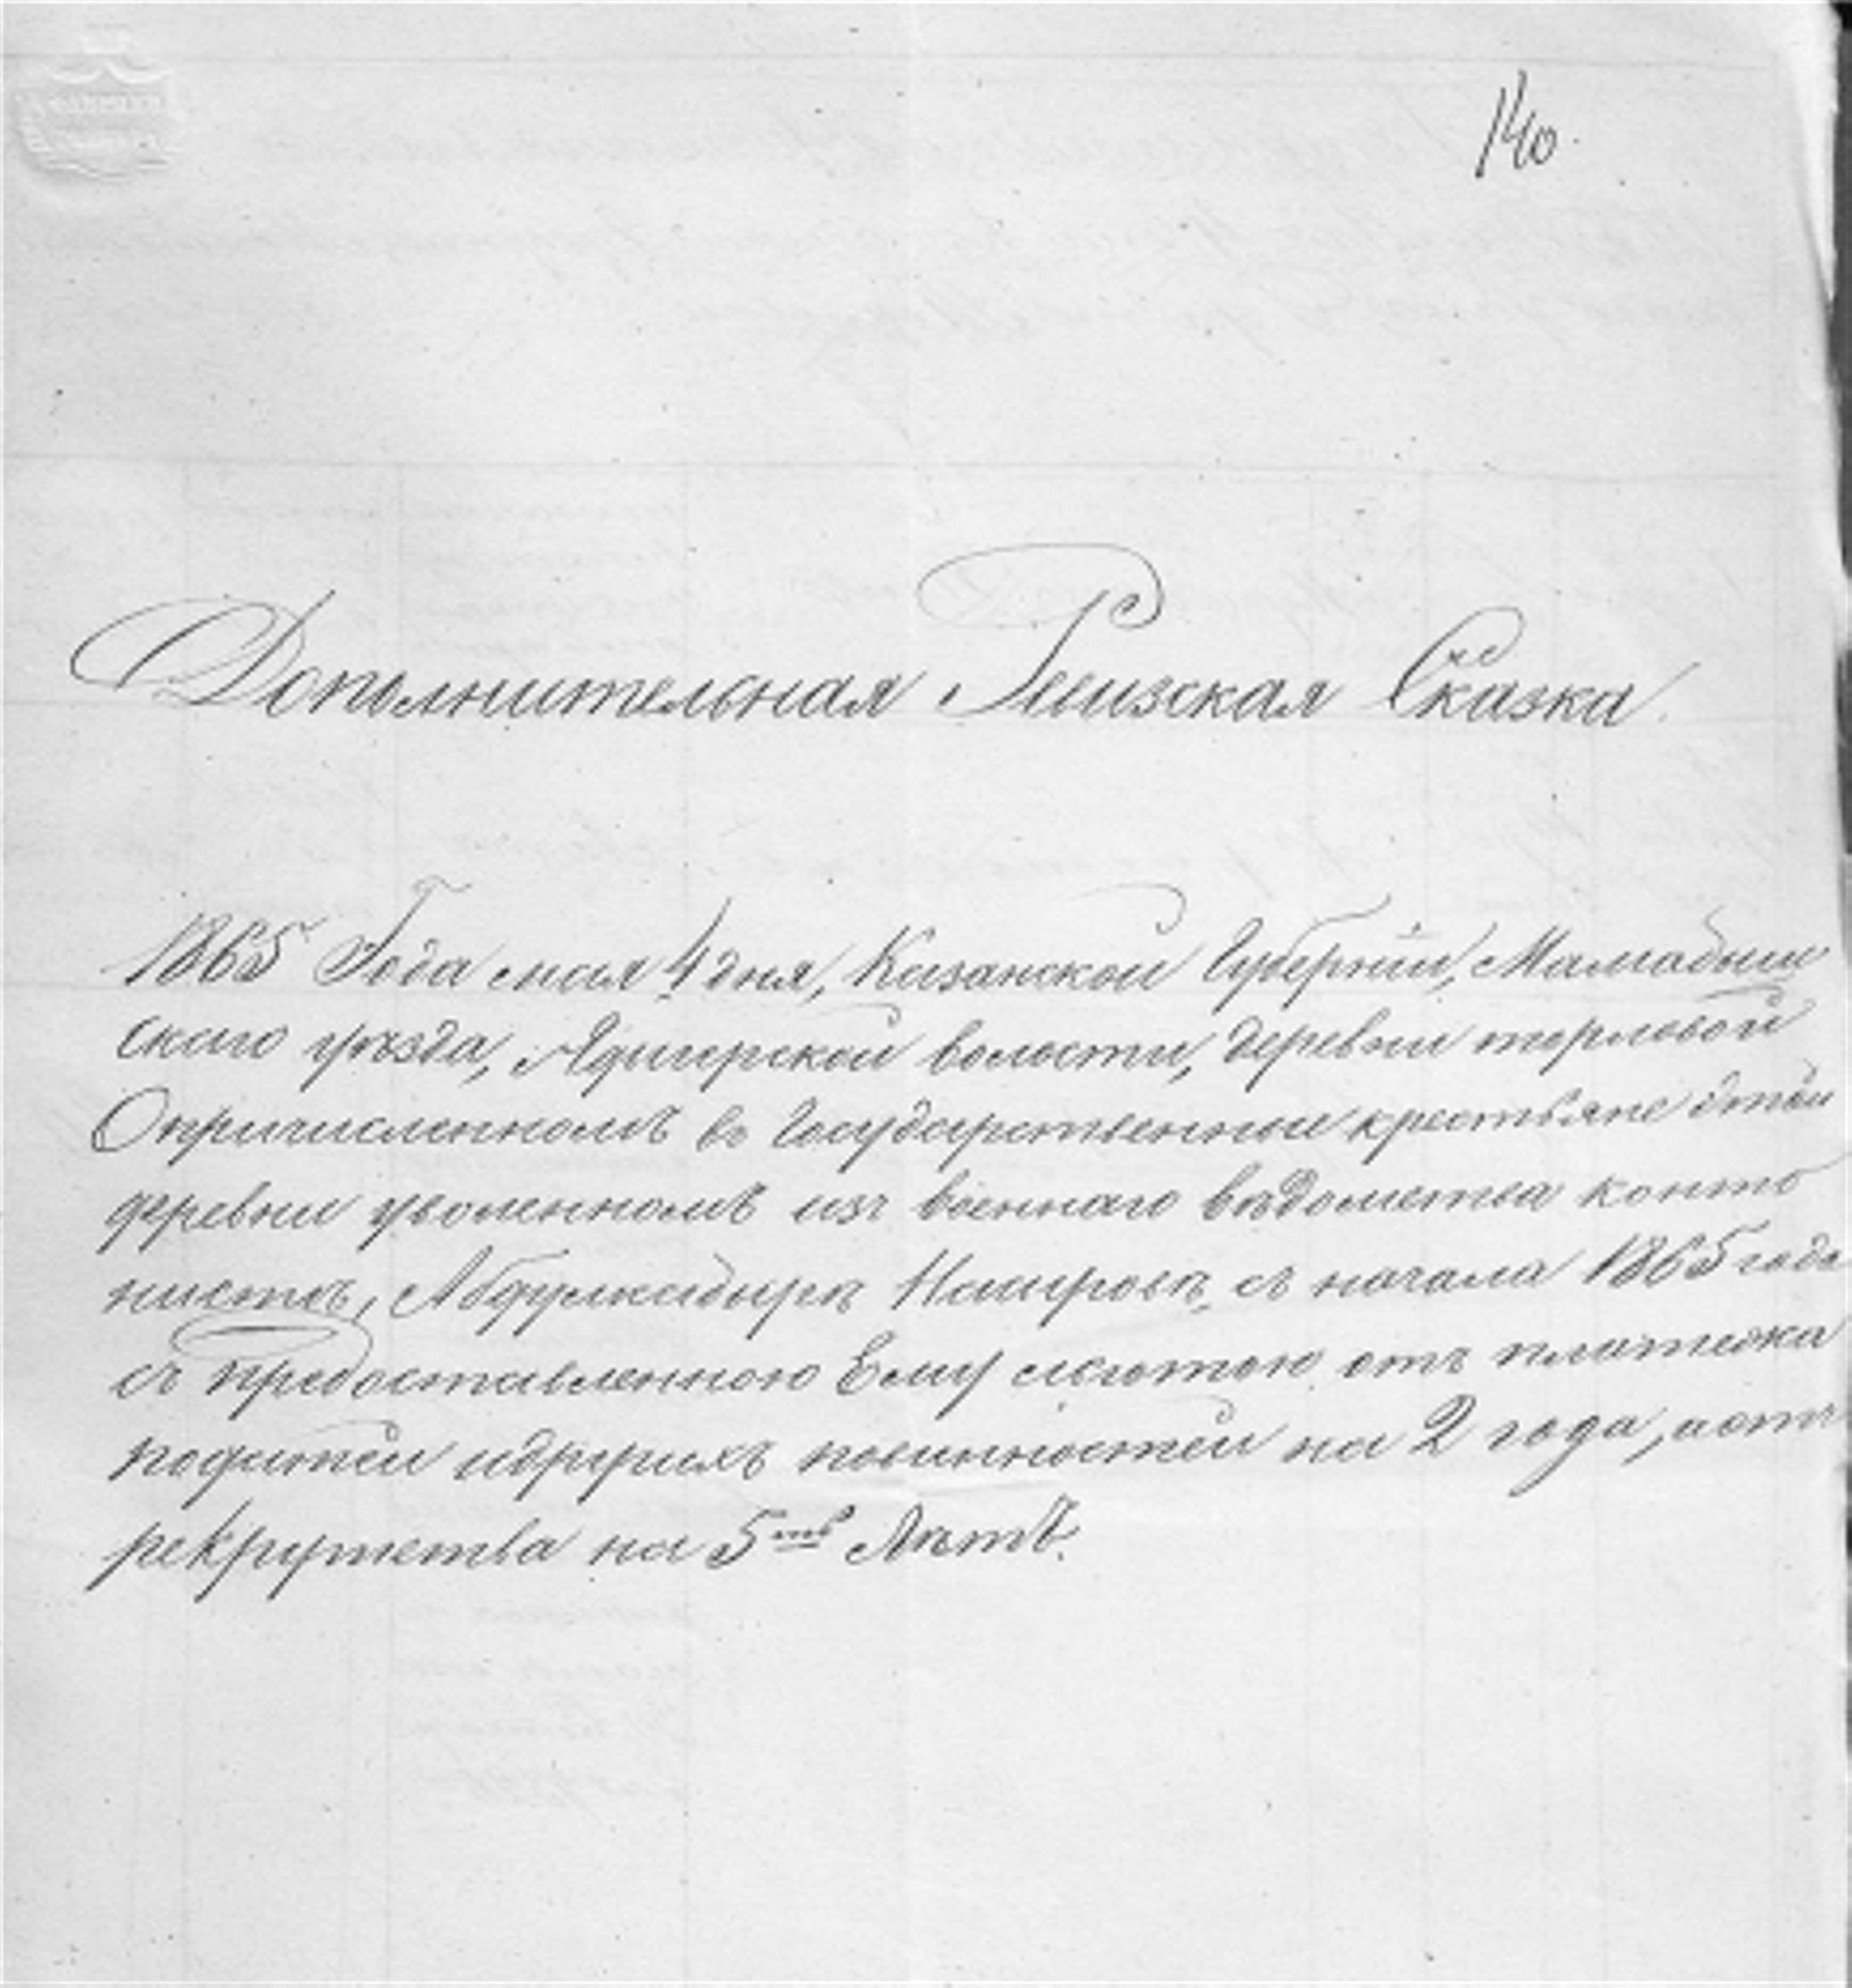 140.
Дополнительная Ревизская Сказка.
1865 Года мая 4 дня, Казанской Губерніи, Мамадыш
скаго уѣзда, Ядигерской волости, деревни торловой
О причисленномъ въ Государственные крестьяне этой
деревни уволенномъ изъ военнаго вѣдомства канто
нистѣ, Абдулкадырѣ Наировѣ, съ начала 1865 года
съ предоставленною Ему льготою отъ платежа
податей и другихъ повинностей на 2 года, а отъ
рекрутства на 5ть Лѣтъ.